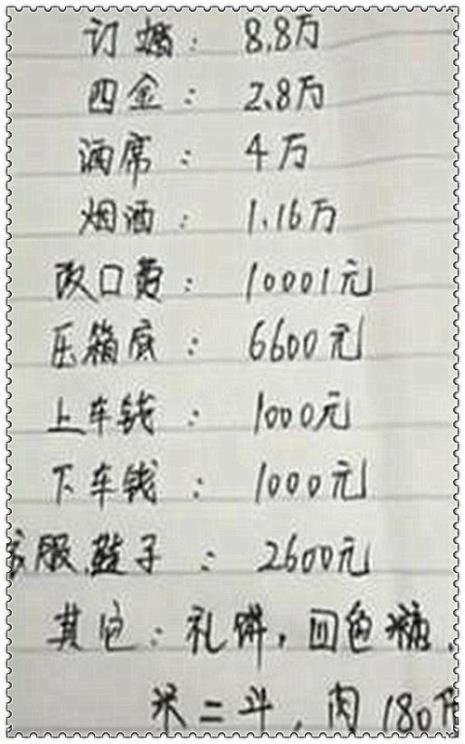 订婚： 8.8万
四金： 2.8万
酒席： 4万
烟酒： 1.16万
改口费： 10001元
压箱底： 6600元
上车钱： 1000元
下车钱： 1000元
衣服,鞋子： 2600元
其它：礼饼，四色糖，
米二斗，肉180斤